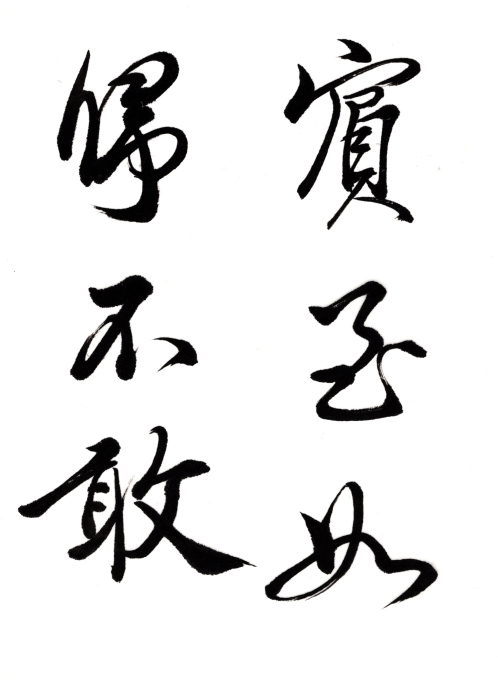 賓至如
歸不敢